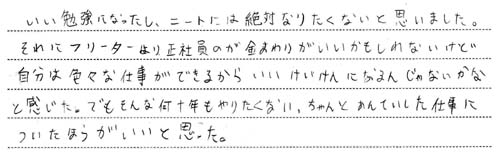 いい勉強になったし、ニートには絶対なりたくないと思いました。
それにフリーターより正社員のが金まわりがいいかもしれないけど
自分は色々な仕事ができるから いいけいけんになるんじゃないかな
と感じた。でもそんな何十年もやりたくない、ちゃんとあんていした仕事に
ついたほうがいいと思った。